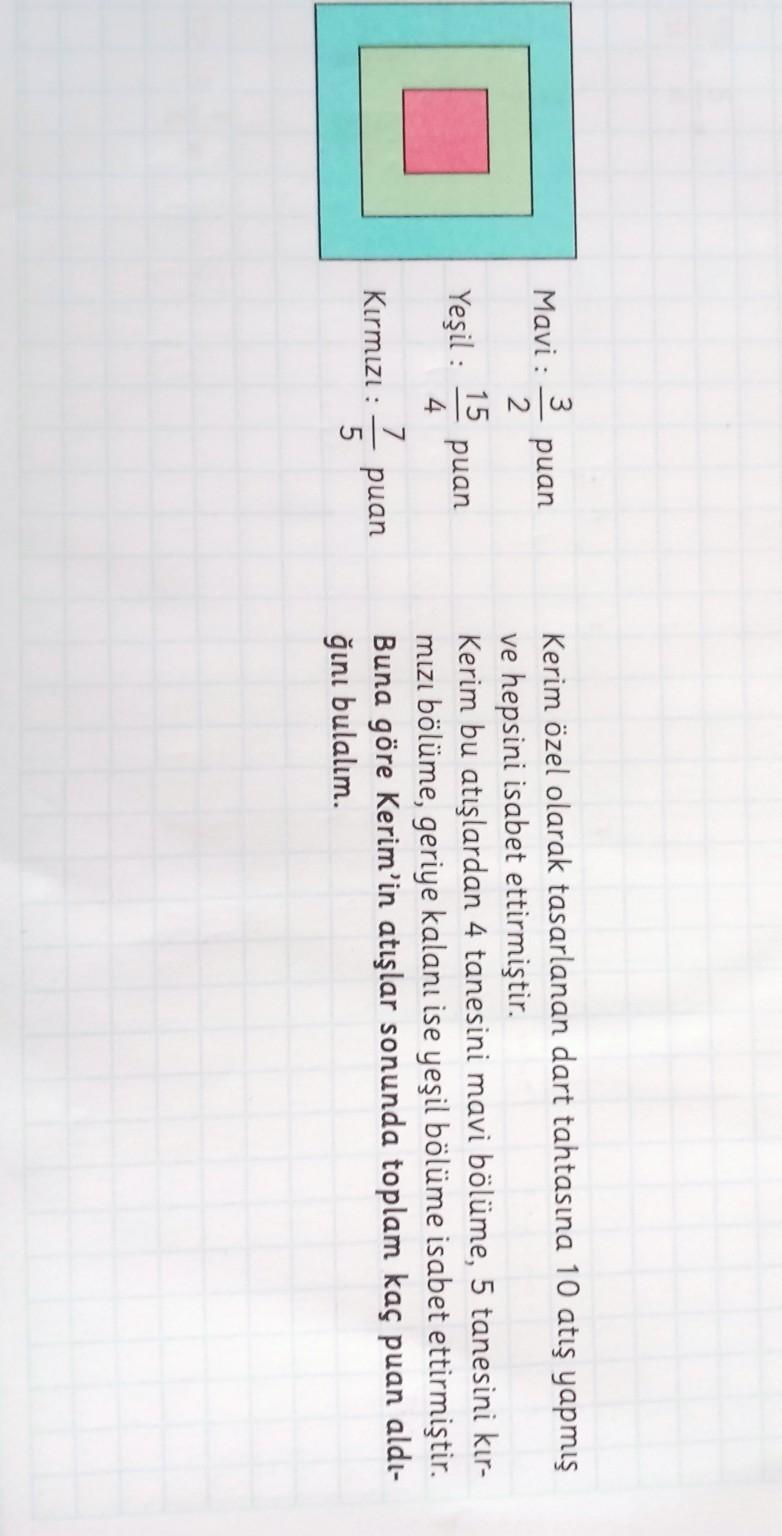 Mavi : 3/2 puan
Yeşil : 15/4 puan
Kırmızı : 7/5 puan
Kerim özel olarak tasarlanan dart tahtasına 10 atış yapmış
ve hepsini isabet ettirmiştir.
Kerim bu atışlardan 4 tanesini mavi bölüme, 5 tanesini kır-
mızı bölüme, geriye kalanı ise yeşil bölüme isabet ettirmiştir.
Buna göre Kerim'in atışlar sonunda toplam kaç puan aldı-
ğını bulalım.